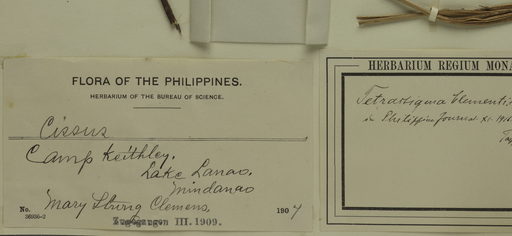 FLORA OF THE PHILIPPINES.
HERBARIUM OF THE BUREAU OF SCIENCE.
Cissus
Camp Keithley,
Lake Lanao,
Mindanao
No. Mary Strong Clemens, 1907
36936-2
Zugegangen III. 1909.
HERBARIUM REGIUM MONA
Tetrastigma Clementis
in Philippine Journal XI. 1916